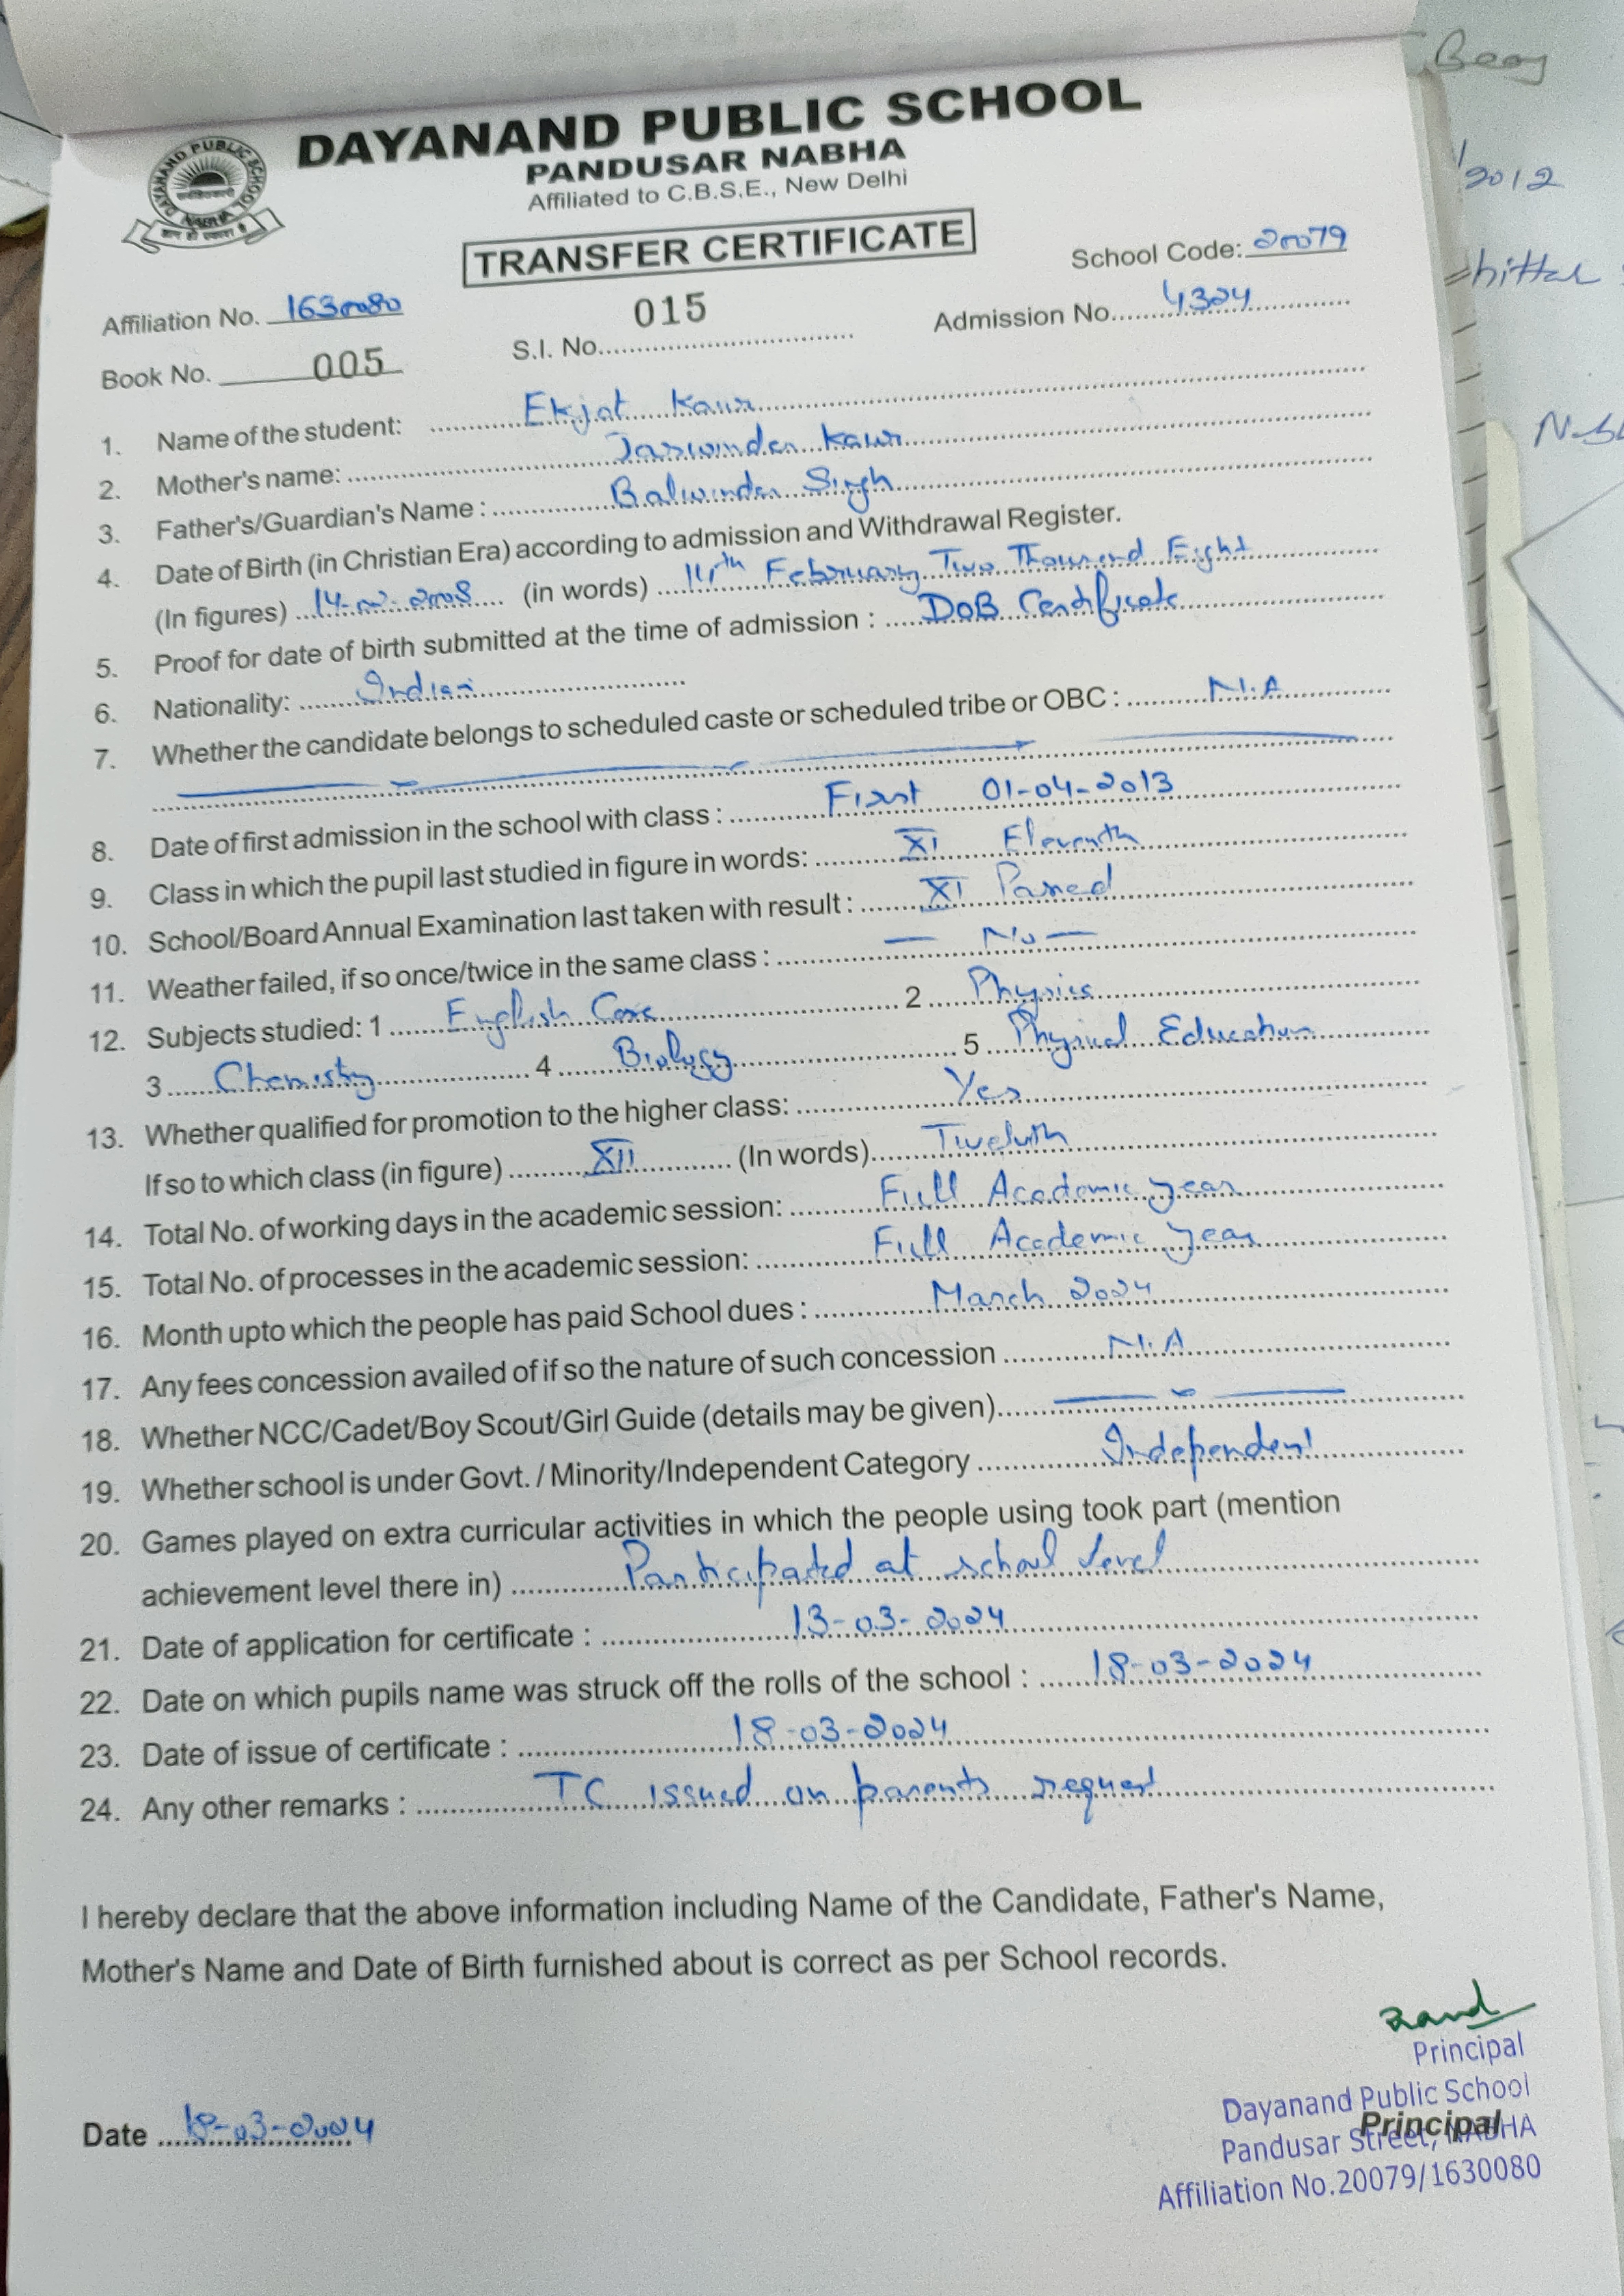 DAYANAND PUBLIC SCHOOL
PANDUSAR NABHA
Affiliated to C.B.S.E., New Delhi
DAYANAND PUBLIC SCHOOL
NABHA
TRANSFER CERTIFICATE
School Code: 20079
Affiliation No. 1630080
015
S.I. No.
Admission No. 4324
Book No. 005
1. Name of the student: Ekjot Kaur
2. Mother's name: Jaswinder Kaur
3. Father's/Guardian's Name : Balwinder Singh
4. Date of Birth (in Christian Era) according to admission and Withdrawal Register.
(In figures) 14-02-2008 (in words) 14th February Two Thousand Eight
5. Proof for date of birth submitted at the time of admission : DoB Certificate
6. Nationality: Indian
7. Whether the candidate belongs to scheduled caste or scheduled tribe or OBC : N.A
8. Date of first admission in the school with class : First 01-04-2013
9. Class in which the pupil last studied in figure in words: XI Eleventh
10. School/Board Annual Examination last taken with result : XI Passed
11. Weather failed, if so once/twice in the same class : — No —
12. Subjects studied: 1 English Core 2 Physics
3 Chemistry 4 Biology 5 Physical Education
13. Whether qualified for promotion to the higher class: Yes
If so to which class (in figure) XII (In words) Twelvth
14. Total No. of working days in the academic session: Full Academic year
15. Total No. of processes in the academic session: Full Academic year
16. Month upto which the people has paid School dues : March 2024
17. Any fees concession availed of if so the nature of such concession N.A
18. Whether NCC/Cadet/Boy Scout/Girl Guide (details may be given)
19. Whether school is under Govt. / Minority/Independent Category Independent
20. Games played on extra curricular activities in which the people using took part (mention
achievement level there in) Participated at school level
21. Date of application for certificate : 13-03-2024
22. Date on which pupils name was struck off the rolls of the school : 18-03-2024
23. Date of issue of certificate : 18-03-2024
24. Any other remarks : TC issued on parents request
I hereby declare that the above information including Name of the Candidate, Father's Name,
Mother's Name and Date of Birth furnished about is correct as per School records.
Date 18-03-2024
Principal
Dayanand Public School
Principal
Pandusar Street, NABHA
Affiliation No.20079/1630080
2012